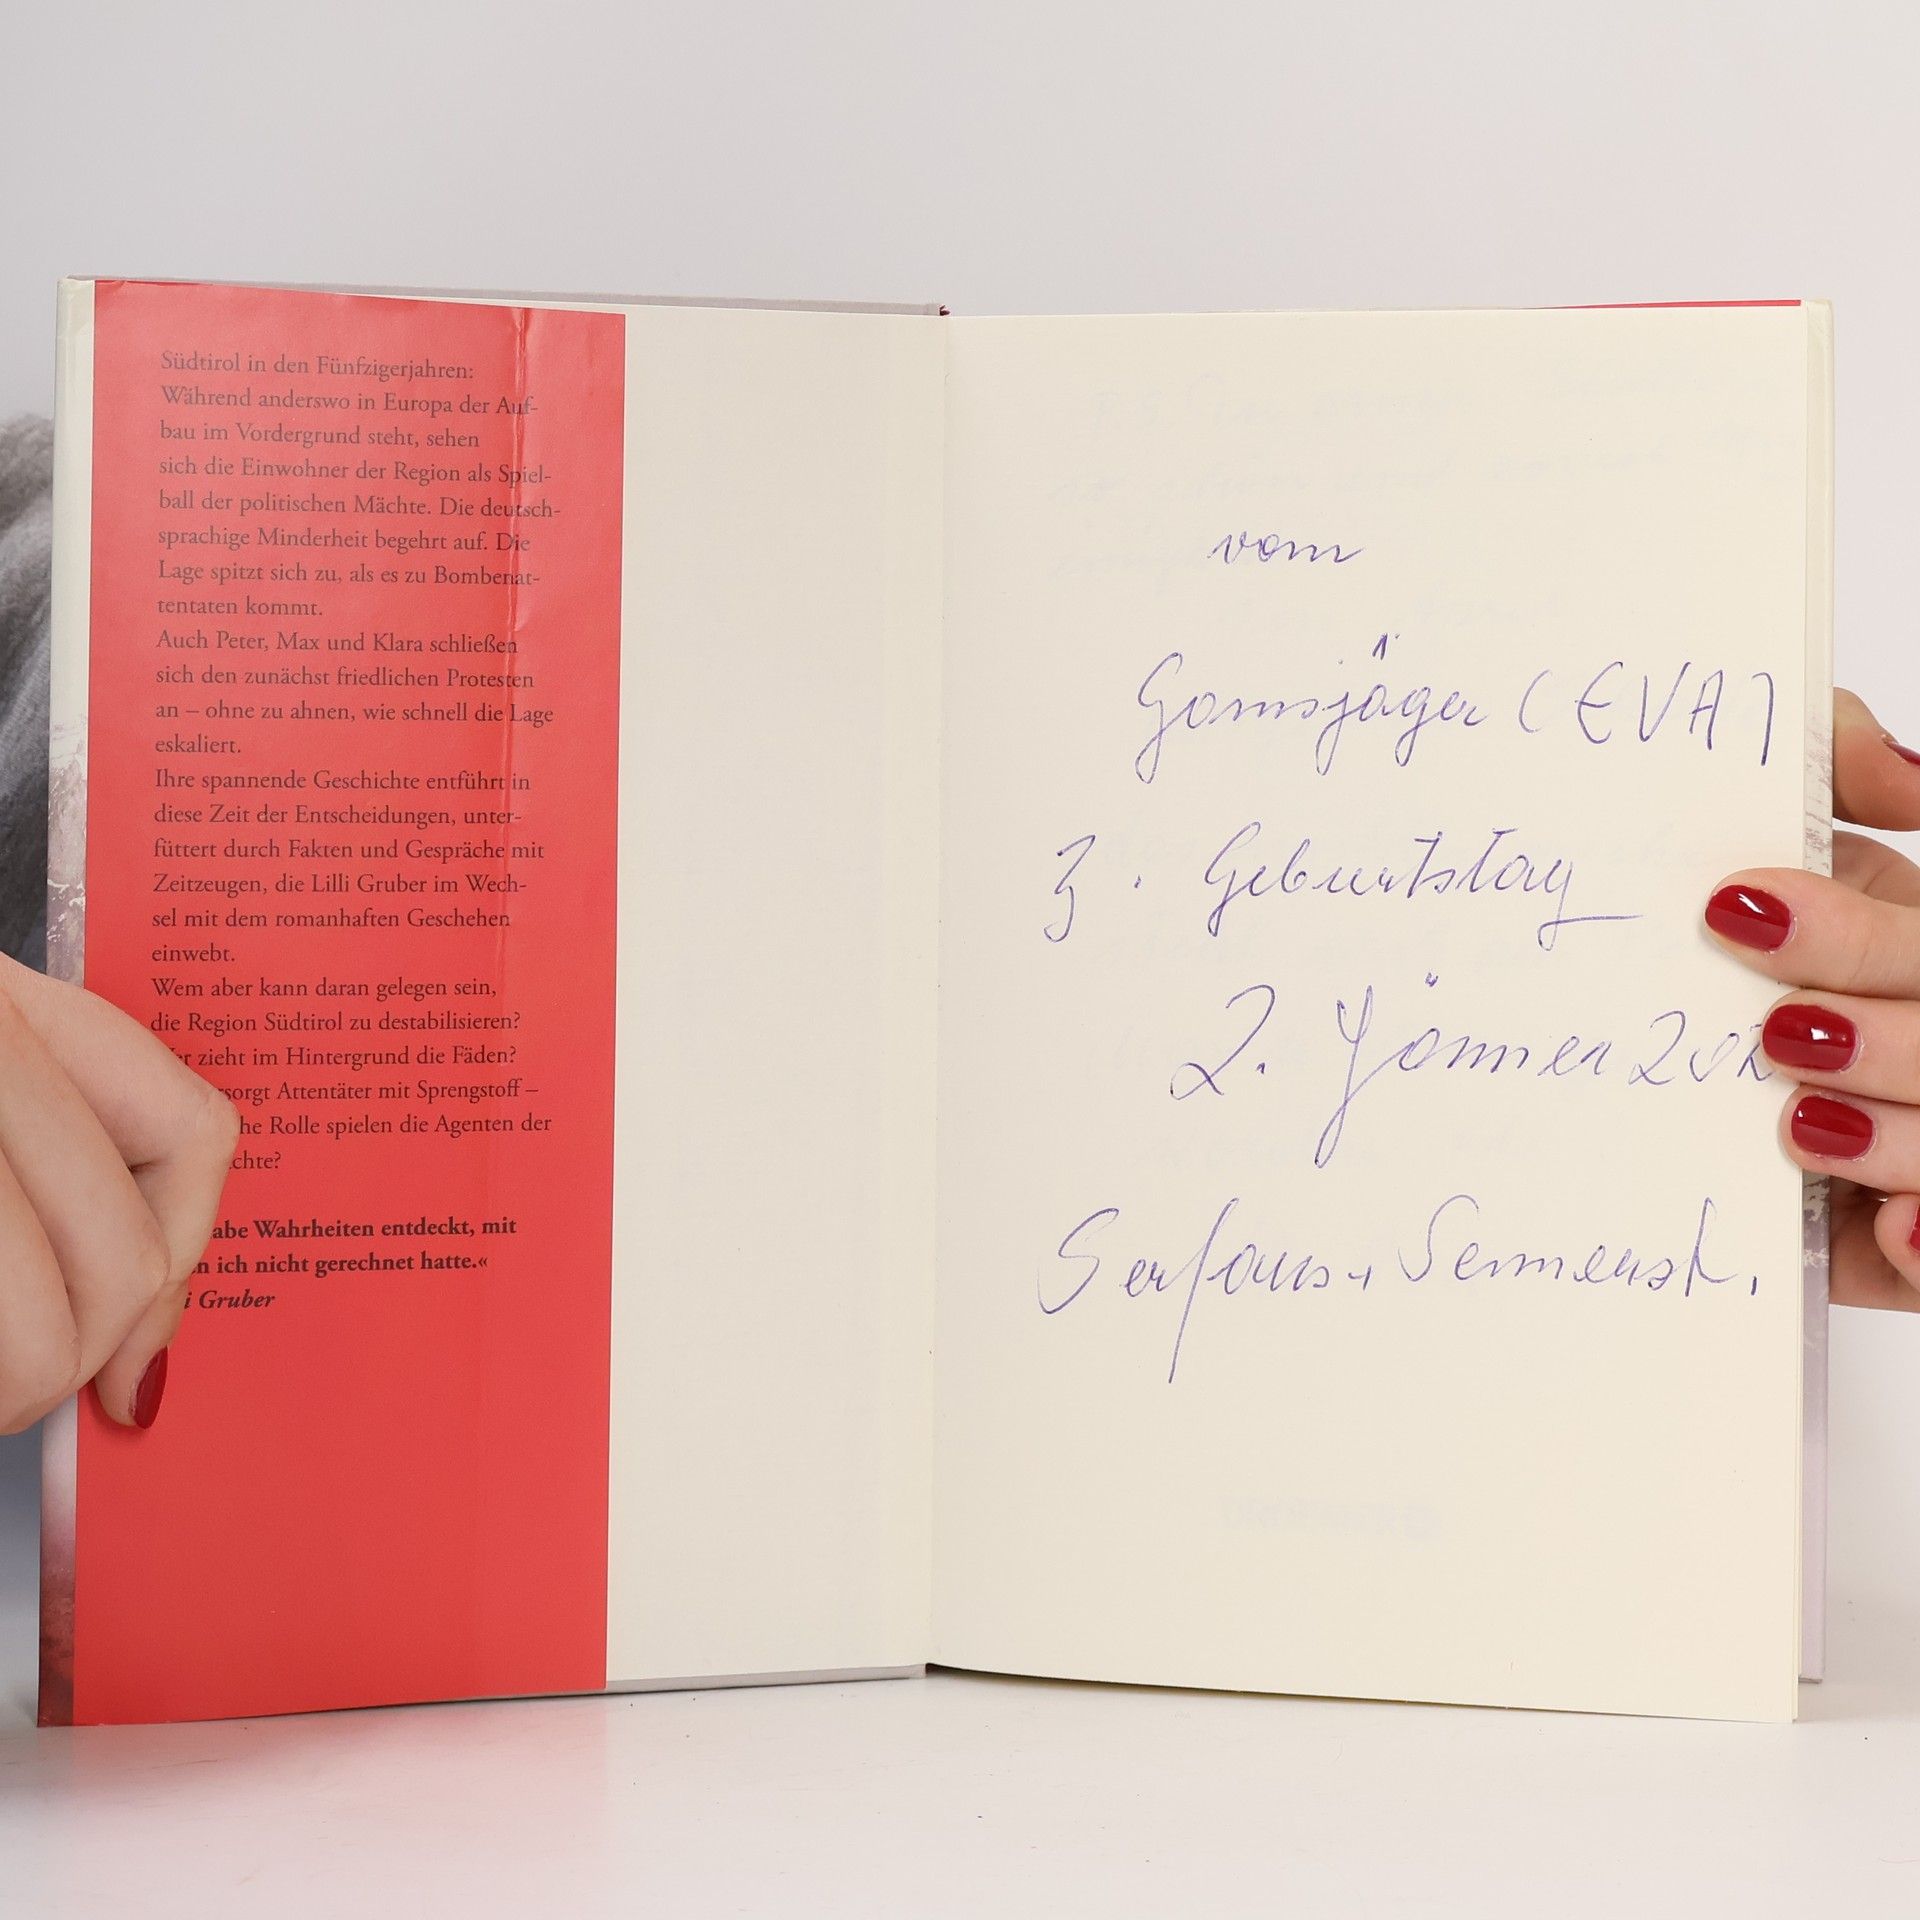 Südtirol in den Fünfzigerjahren:
Während anderswo in Europa der Auf-
bau im Vordergrund steht, sehen
sich die Einwohner der Region als Spiel-
ball der politischen Mächte. Die deutsch-
sprachige Minderheit begehrt auf. Die
Lage spitzt sich zu, als es zu Bombenat-
tentaten kommt.
Auch Peter, Max und Klara schließen
sich den zunächst friedlichen Protesten
an – ohne zu ahnen, wie schnell die Lage
eskaliert.
Ihre spannende Geschichte entführt in
diese Zeit der Entscheidungen, unter-
füttert durch Fakten und Gespräche mit
Zeitzeugen, die Lilli Gruber im Wech-
sel mit dem romanhaften Geschehen
einwebt.
Wem aber kann daran gelegen sein,
die Region Südtirol zu destabilisieren?
zieht im Hintergrund die Fäden?
sorgt Attentäter mit Sprengstoff –
he Rolle spielen die Agenten der
chte?
abe Wahrheiten entdeckt, mit
n ich nicht gerechnet hatte.«
i Gruber
vom
Gamsjäger (EVA)
3. Geburtstag
2. Jänner 202
Serfaus +